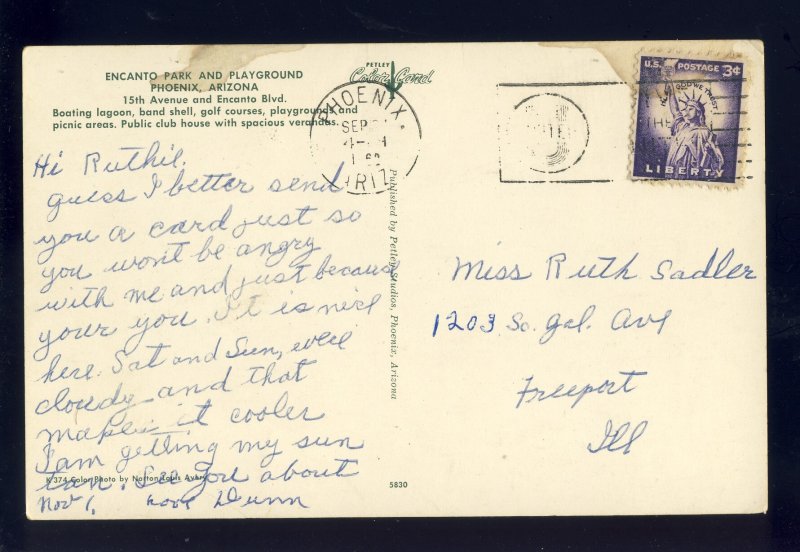 ENCANTO PARK AND PLAYGROUND
PHOENIX, ARIZONA
15th Avenue and Encanto Blvd.
Boating lagoon, band shell, golf courses, playgrounds and
picnic areas. Public club house with spacious verandas.
PETLEY
Color Card
PHOENIX
SEP
ARIZ
U.S. POSTAGE 3¢
IN GOD WE TRUST
LIBERTY
Hi Ruthie.
guess I better send
you a card just so
you won't be angry
with me and just because
your you. It is nice
here. Sat and Sun, were
cloudy and that
makes it cooler
I am getting my sun
tan. See you about
Nov 1. Love Dunn
Published by Petley Studios, Phoenix, Arizona
Miss Ruth Sadler
1203 So. Gal. Ave
Freeport
Ill
K 374 Color Photo by Norton Louis Avery
5830